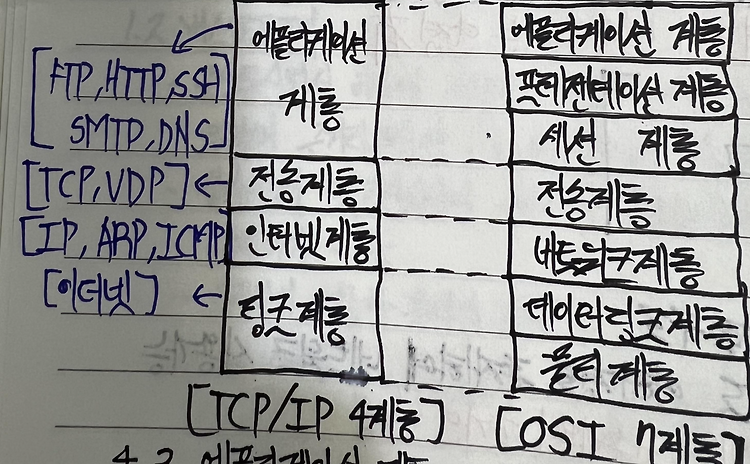 [FTP, HTTP, SSH
SMTP, DNS]
[TCP, UDP] ←
[IP, ARP, ICMP]
[이더넷] ←
에플리케이션
계층
전송계층
인터넷계층
링크계층
[TCP/IP 4계층]
에플리케이션 계층
프레젠테이션 계층
세션 계층
전송계층
네트워크계층
데이터링크계층
물리계층
[OSI 7계층]
4.2 에플리케이션 계층